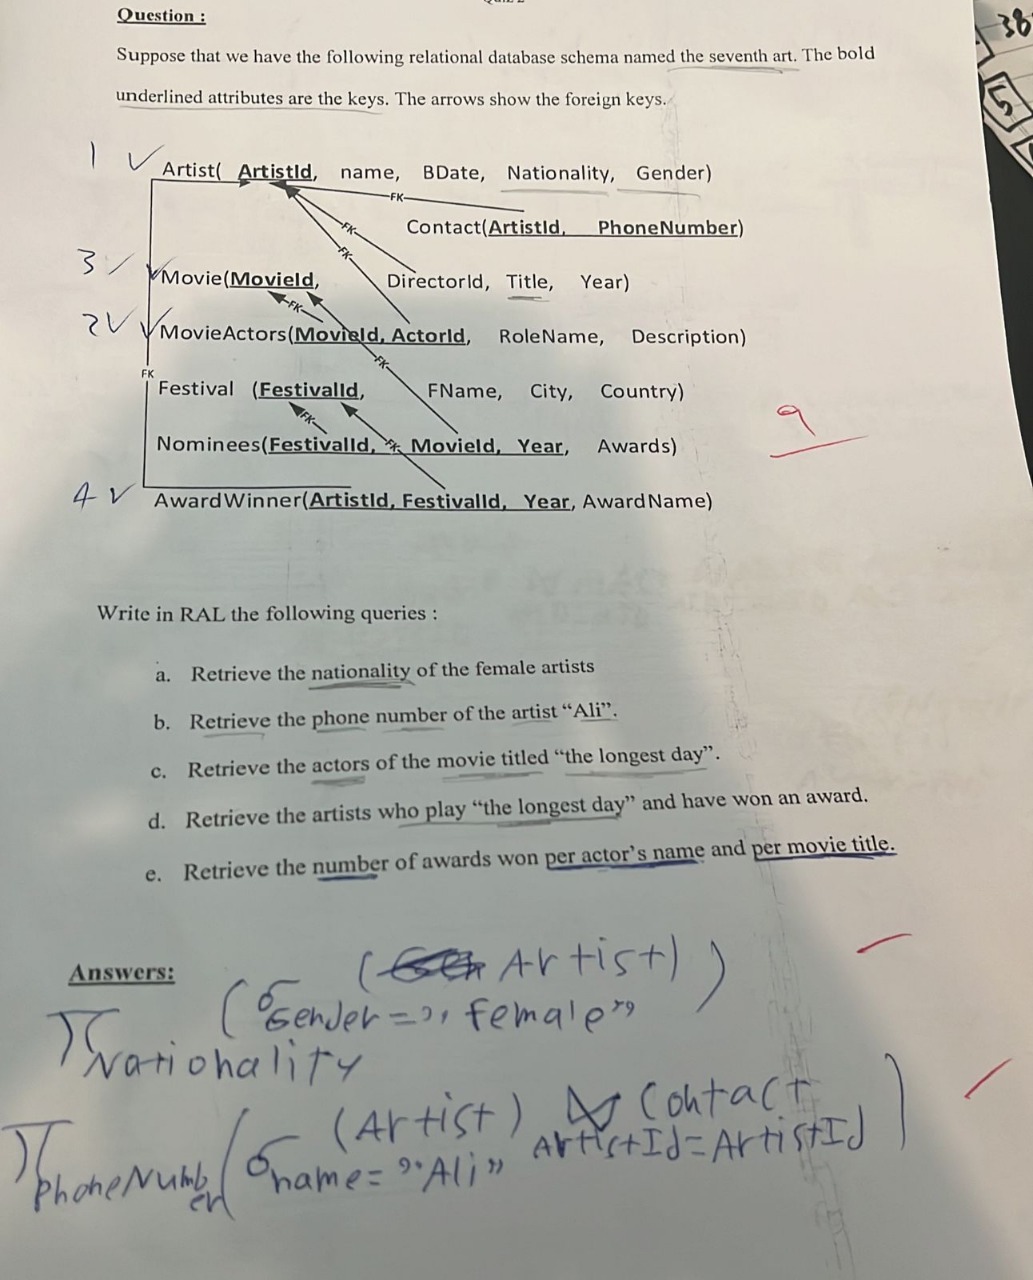 Question :
Suppose that we have the following relational database schema named the seventh art. The bold
underlined attributes are the keys. The arrows show the foreign keys.
38
5
1 ✓ Artist( ArtistId, name, BDate, Nationality, Gender)
FK
Contact(ArtistId, PhoneNumber)
FK
FK
3 ✓ Movie(MovieId, DirectorId, Title, Year)
FK
2 ✓ MovieActors(MovieId, ActorId, RoleName, Description)
FK
FK
Festival (FestivalId, FName, City, Country)
9
FK
Nominees(FestivalId, FK MovieId, Year, Awards)
4 ✓ AwardWinner(ArtistId, FestivalId, Year, AwardName)
Write in RAL the following queries :
a. Retrieve the nationality of the female artists
b. Retrieve the phone number of the artist “Ali”.
c. Retrieve the actors of the movie titled “the longest day”.
d. Retrieve the artists who play “the longest day” and have won an award.
e. Retrieve the number of awards won per actor’s name and per movie title.
Answers:
π Nationality ( σ Gender = "female" (Artist) )
π PhoneNumber ( σ name = "Ali" (Artist) ⋈ Contact
ArtistId = ArtistId )